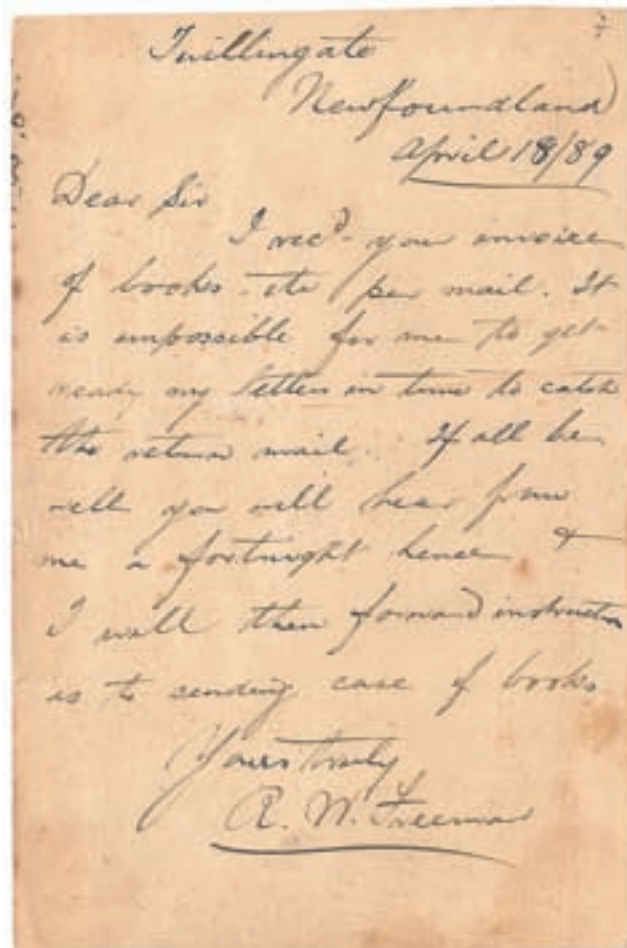 Twillingate
Newfoundland
April 18/89
Dear Sir
I recd. your invoice
of books etc per mail. It
is impossible for me to get
ready my letters in time to catch
the return mail. If all be
well you will hear from
me a fortnight hence &
I will then forward instruction
as to sending case of books
Yours truly
R. W. Freeman